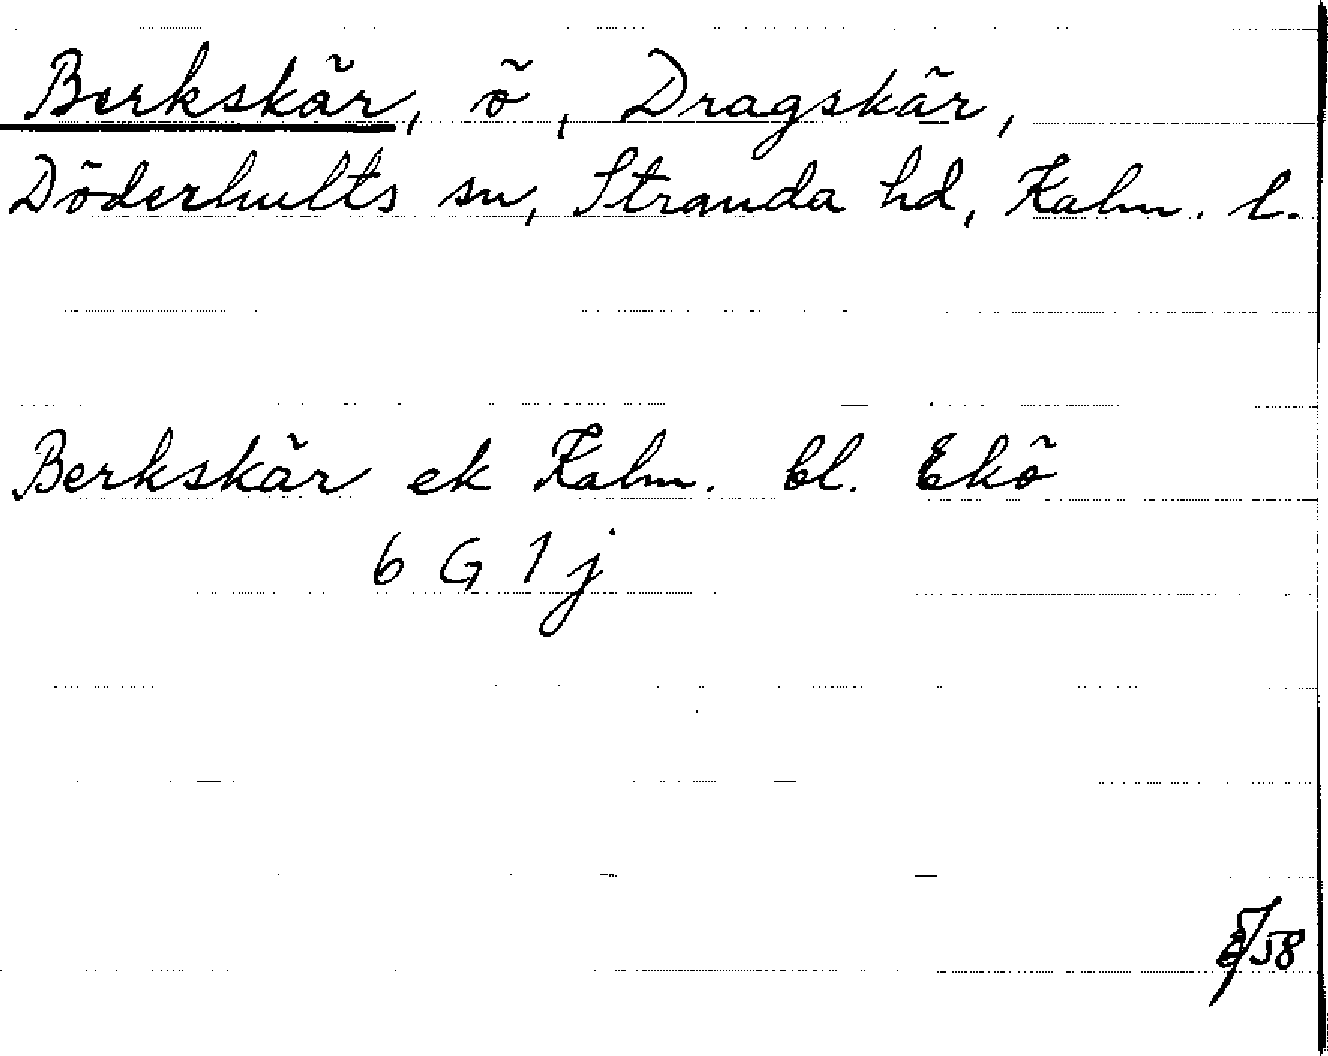 Berkskär, ö, Dragskär,
Döderhults sn, Stranda hd, Kalm. l.
Berkskär ek Kalm. bl. Ekö
6 G 1 j
/58